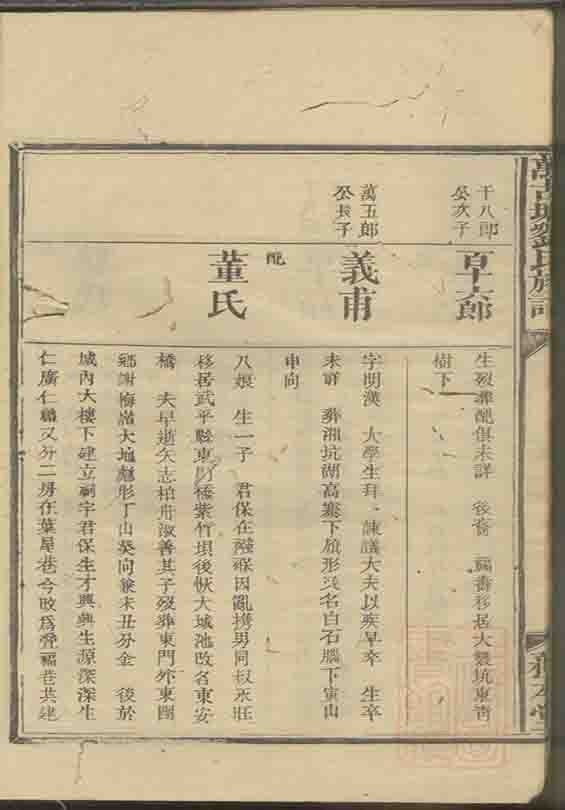 千八郎
公次子
百十六郎
生歿葬配俱未詳 後裔 福壽移居大 坑東青
樹下
萬五郎
公長子
義甫
字明漢 大學生拜 諫議大夫以疾早卒 生卒
未詳 葬湘坑湖高寨下 形 名白石 下寅山
申向
配
董氏
八娘 生一子 君保在 因亂携男同叔 莊
移居武平縣東門 紫竹垻後 大城池改名東安
橋 夫早逝矢志柏舟淑善其子歿葬東門外東團
鄉謝梅 大地 形丁山癸向兼未丑分金 後於
城內大樓下建立祠宇君保生才興興生源深深生
仁廣仁 又分二房在葉屋巷今改為 福巷共建